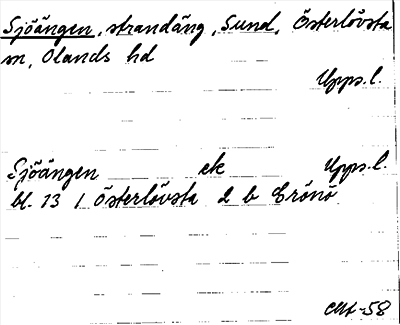 Sjöängen, strandäng, Sund, Österlövsta
sn, Olands hd
Upps.l.
Sjöängen ek Upps.l.
bl. 13 1 Österlövsta d b Erönö
-58